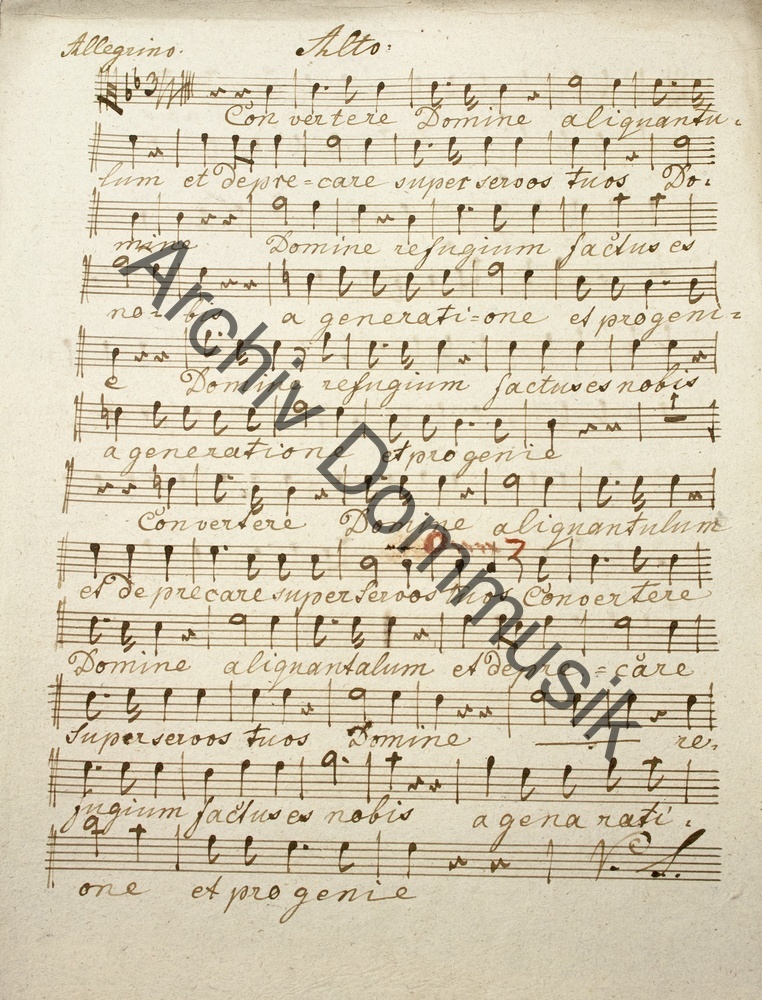 Allegrino. Alto:
Convertere Domine aliquantu-
lum et depre=care super servos tuos Do-
mine Domine refugium factus es
no-bis a generati=one et progeni=
e Domine refugium factus es nobis
a generatione et progenie
Convertere Domine aliquantulum
et deprecare super servos tuos Convertere
Domine aliquantalum et depre=care
super servos tuos Domine re-
fugium factus es nobis a genarati-
one et progenie V. S.
Archiv Dommusik